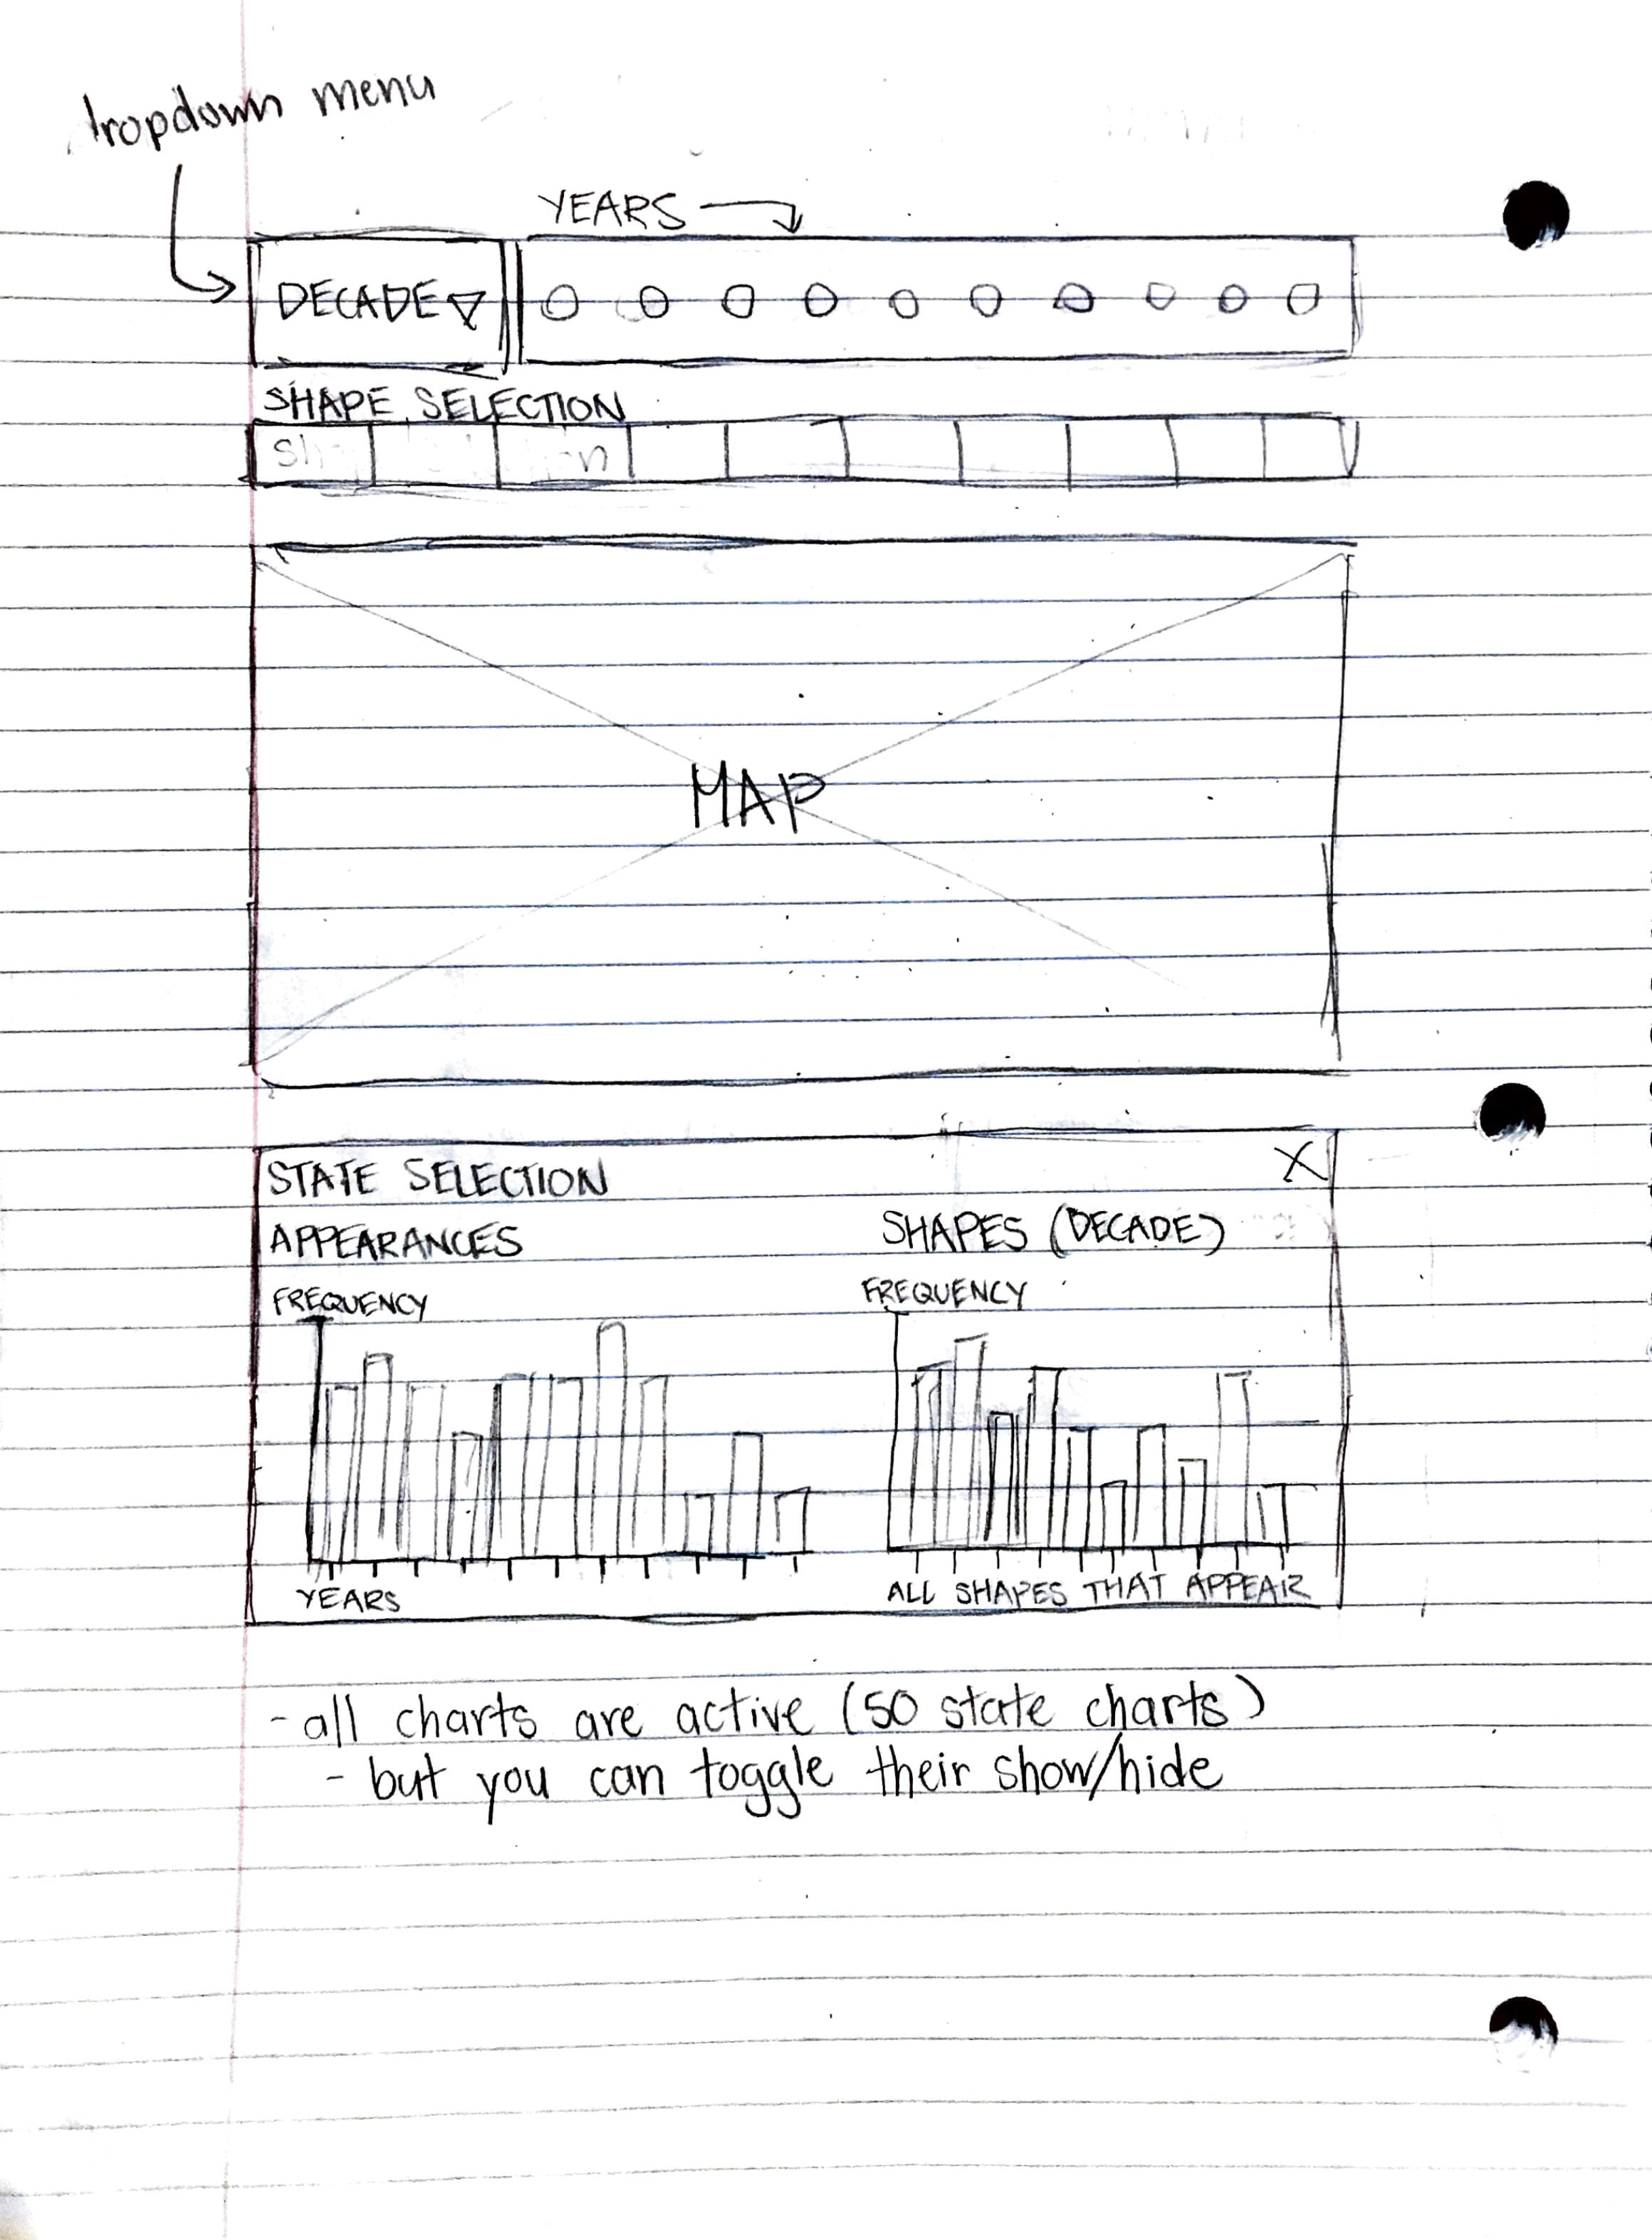 dropdown menu
YEARS
DECADE
SHAPE SELECTION
MAP
STATE SELECTION X
APPEARANCES SHAPES (DECADE)
FREQUENCY FREQUENCY
YEARS ALL SHAPES THAT APPEAR
- all charts are active (50 state charts)
- but you can toggle their show/hide